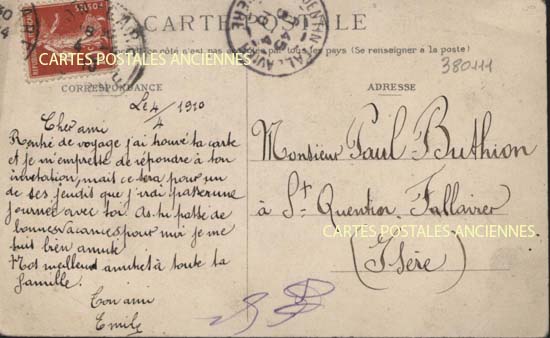 CARTE POSTALE
CORRESPONDANCE
ADRESSE
380111
Le 4/4 1910
Cher ami
Rentré de voyage j'ai trouvé ta carte
et je m'empresse de répondre à ton
invitation, mais ce sera pour un
de ses jeudis que j'irai passer une
journée avec toi. As-tu passé de
bonnes vacances, pour moi je me
suis bien amusé
meilleur amitiés à toute ta
famille.
Ton ami
Emile
Monsieur Paul Buthion
à St Quentin Fallavier
(Isère)
CARTES POSTALES ANCIENNES
CARTES POSTALES ANCIENNES